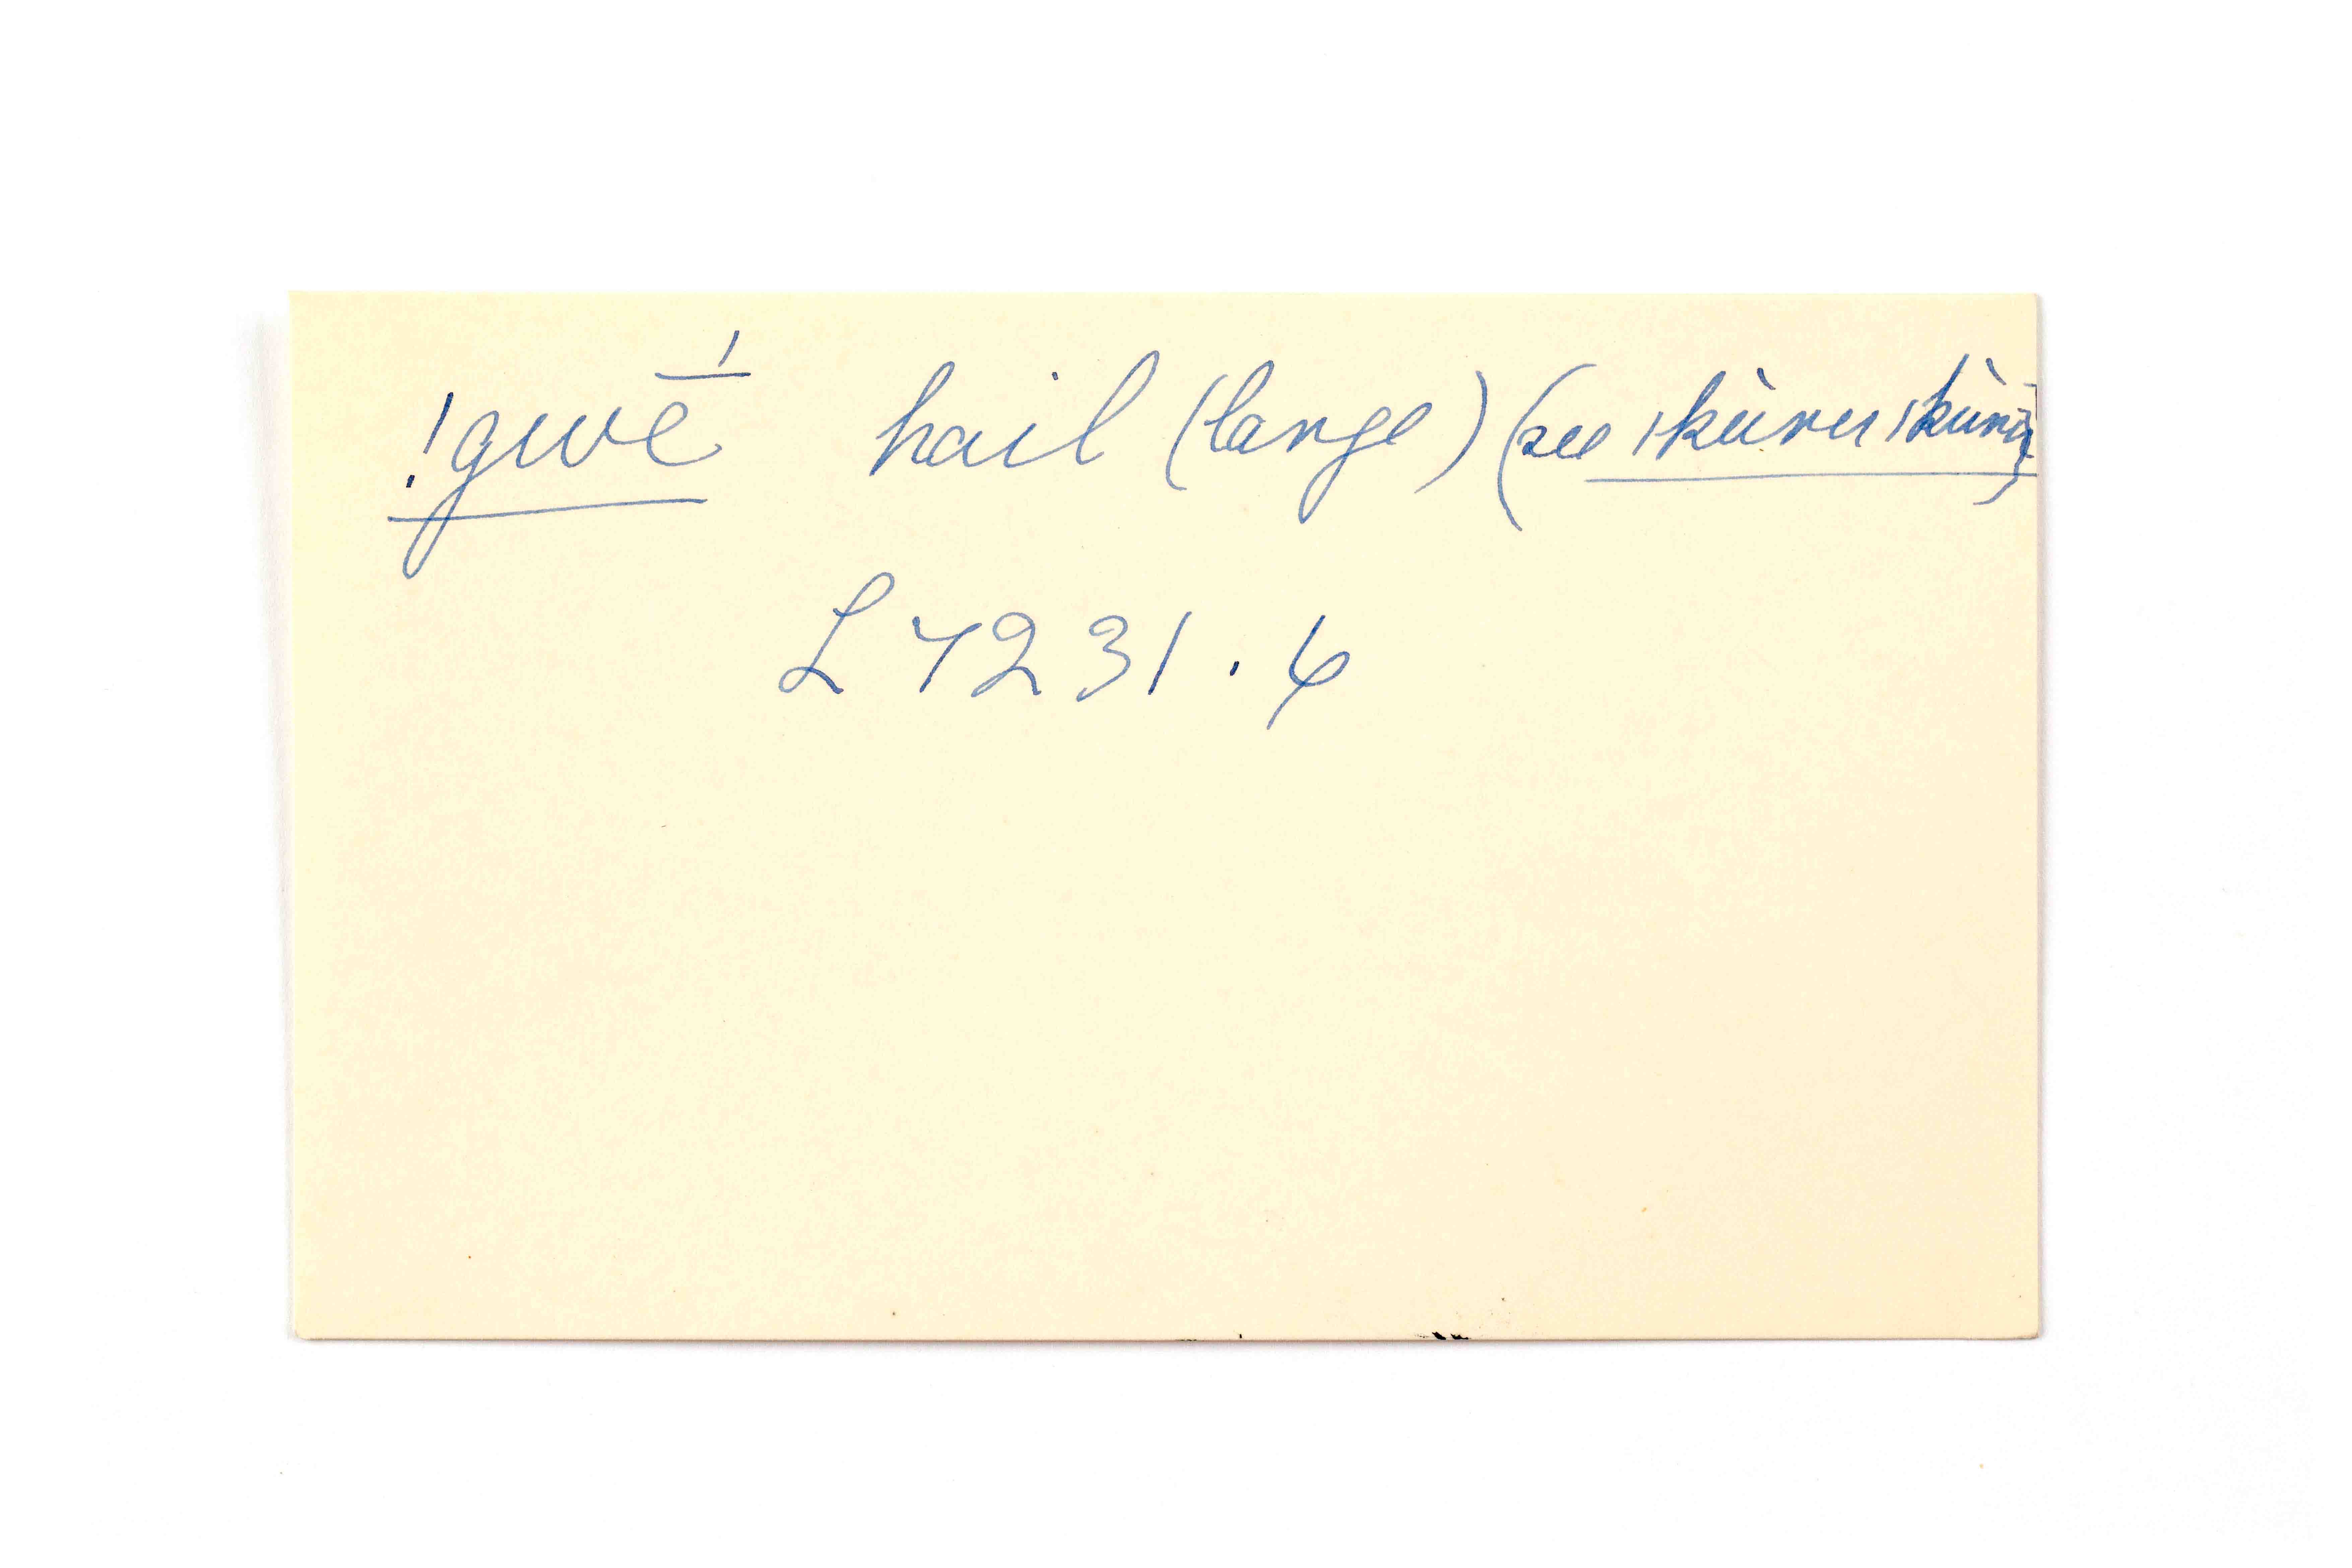 !gwḗ hail (large) (see |kùru |kùru)
L 7231.6